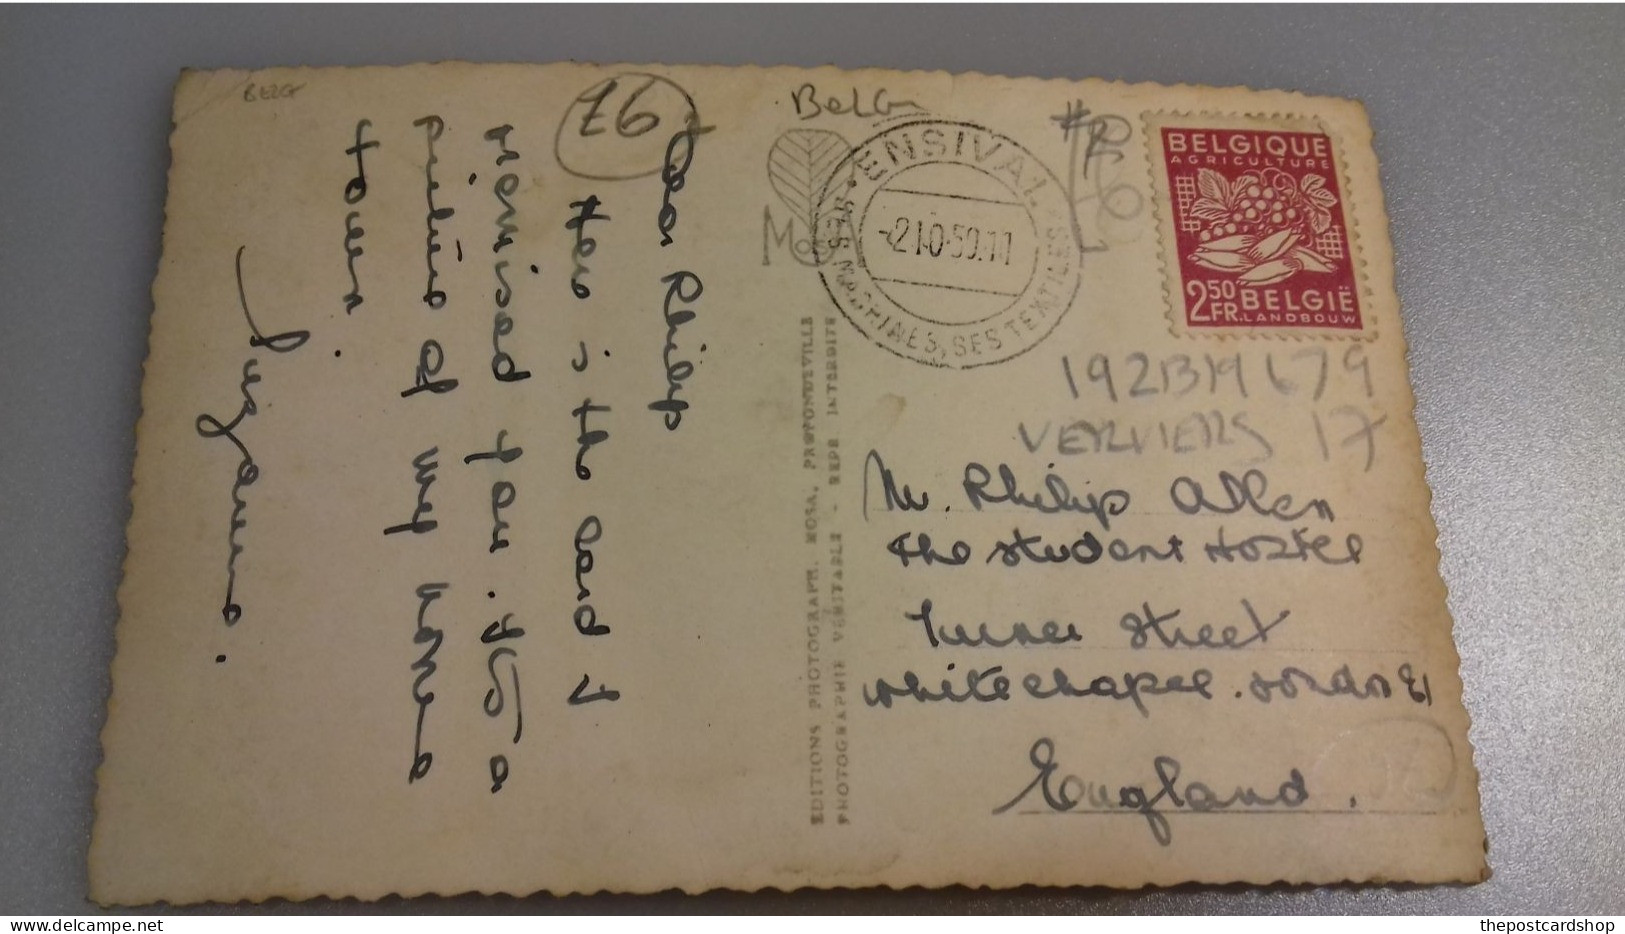 BELG
£6
Dear Philip
Here is the card I
promised you. It's a
picture of my home
town.
Suzanne.
EDITIONS PHOTOGRAPH. MOSA, PROFONDEVILLE
PHOTOGRAPHIE VÉRITABLE - REPR. INTERDITE
BelG
MOSA
ENSIVAL
SES MACHINES, SES TEXTILES
-2 10.50.11
BELGIQUE
AGRICULTURE
2.50 FR. BELGIË
LANDBOUW
192BM679
VERVIERS 17
Mr. Philip Allen
The Student Hostel
Turner Street
Whitechapel. London E1
England.
delcampe.net
thepostcardshop